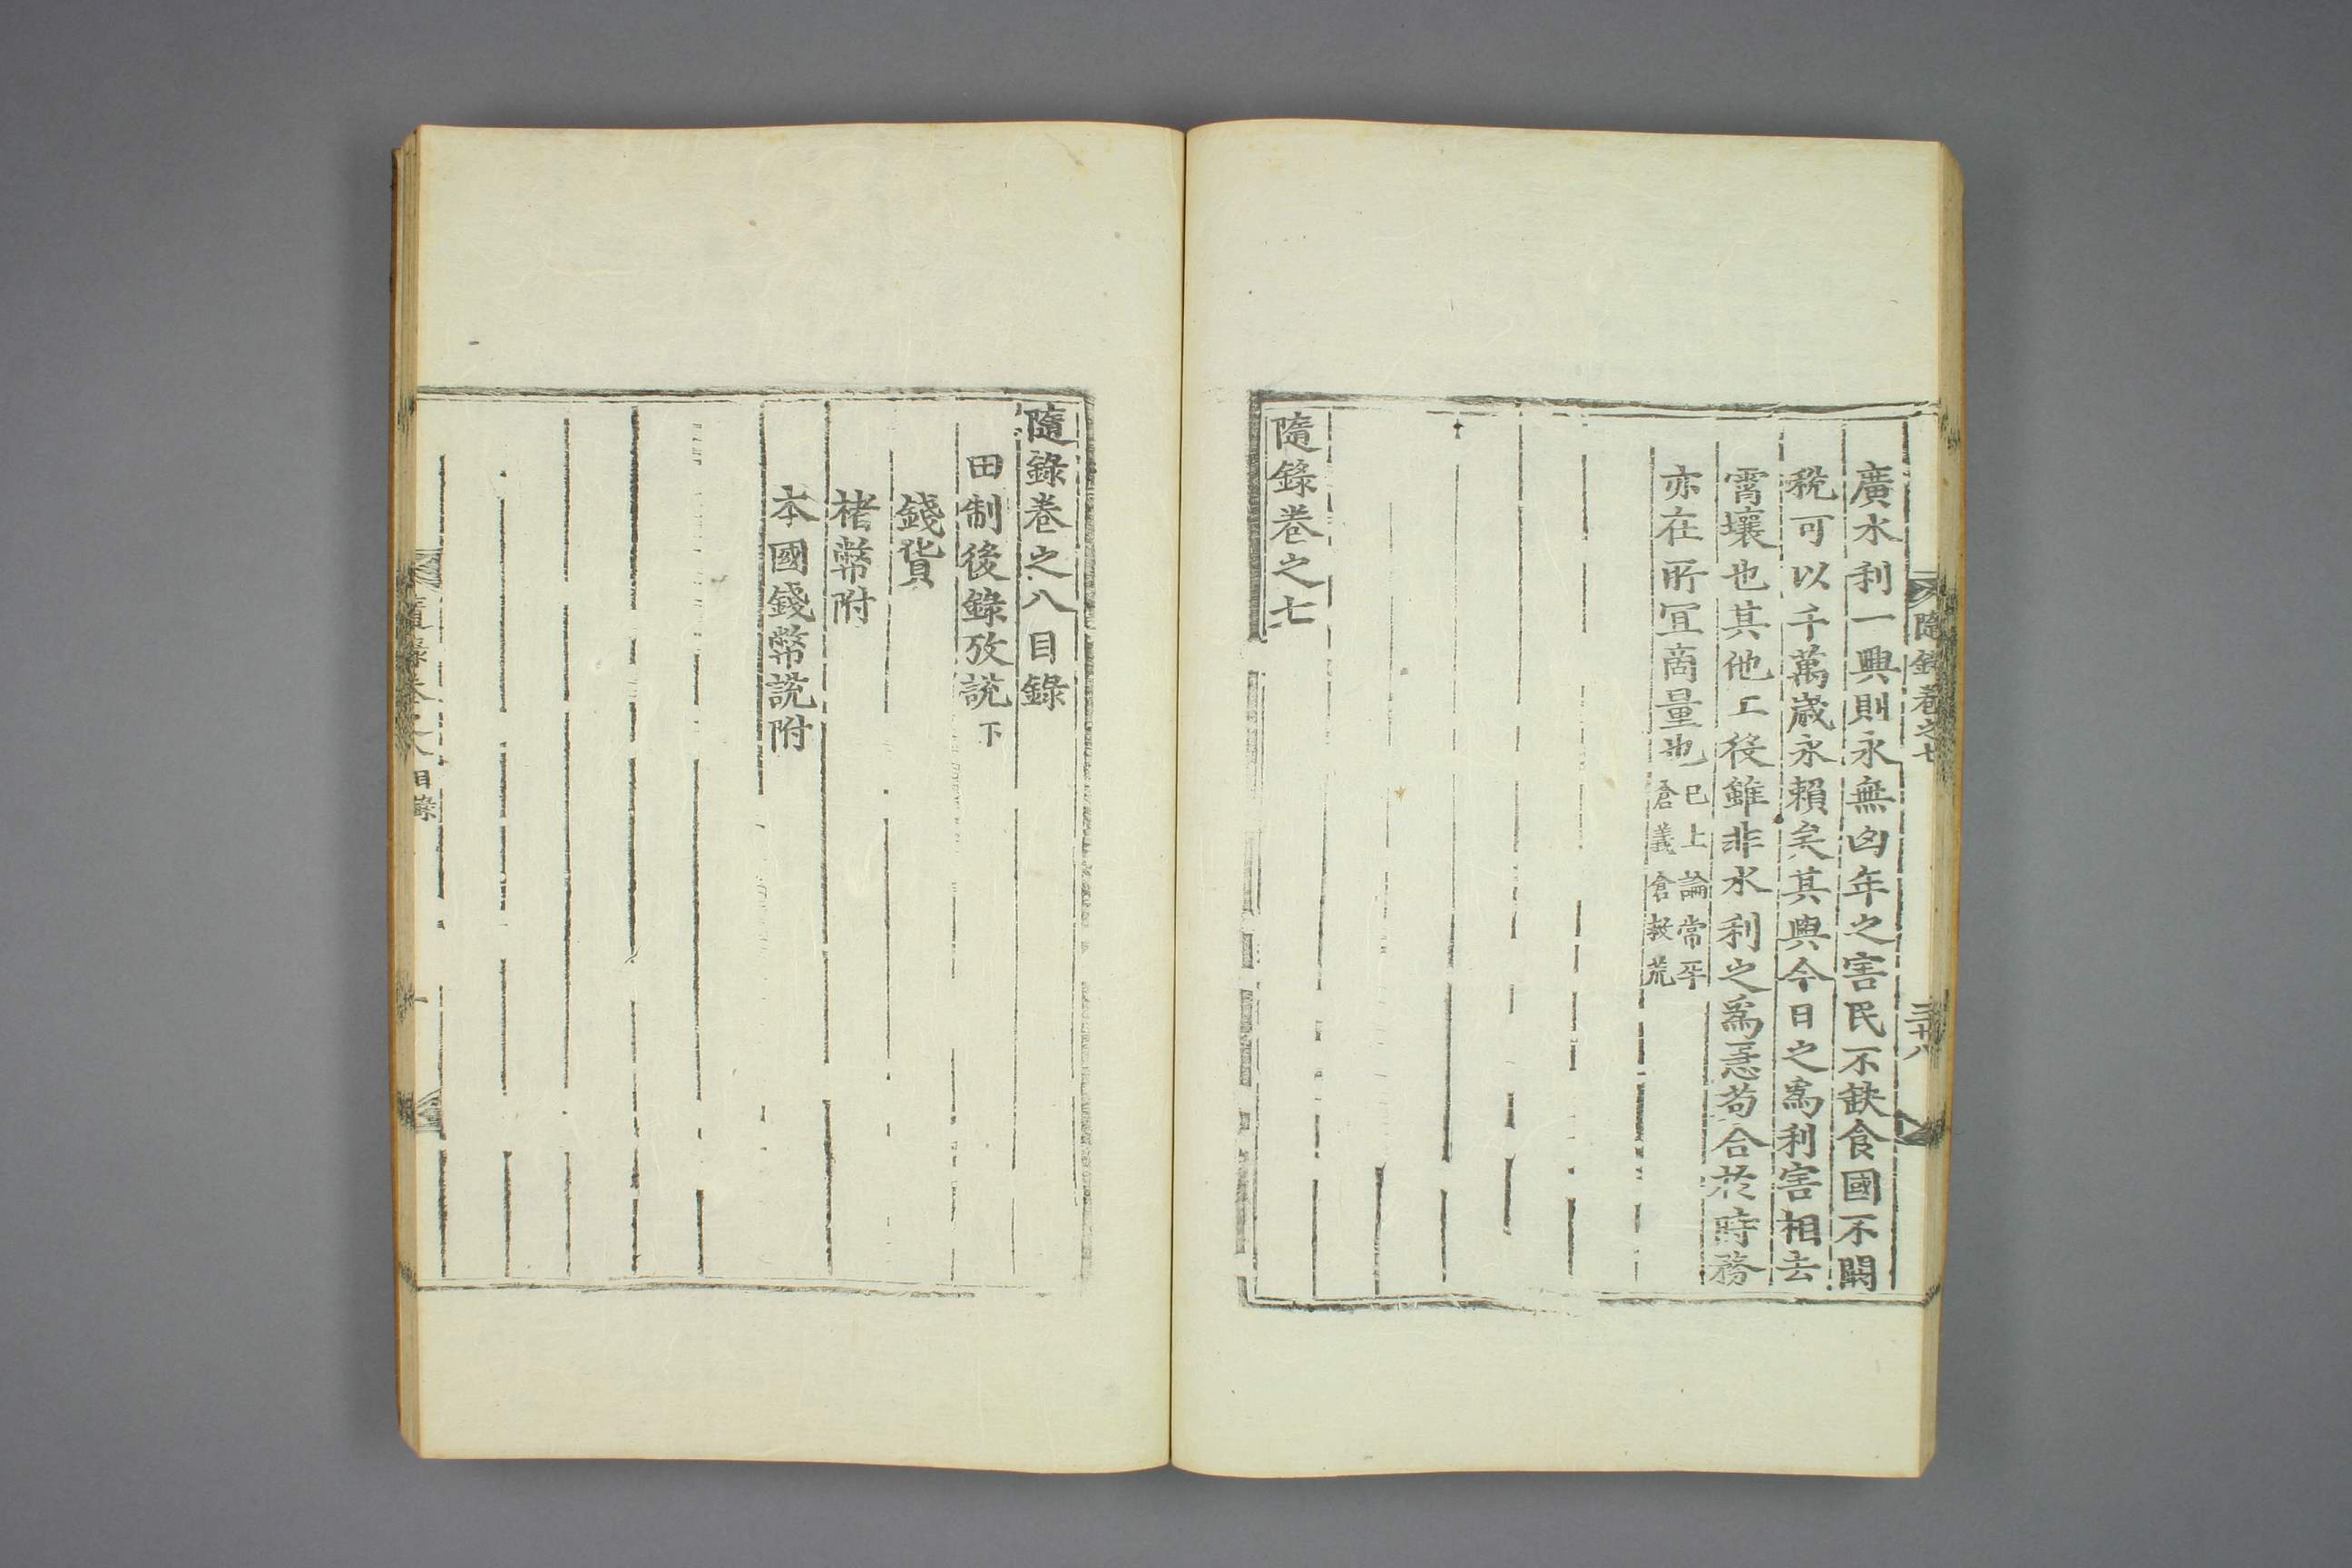 隨錄卷之七
三十八
廣水利一興則永無凶年之害民不缺食國不闕
稅可以千萬歲永賴矣其與今日之爲利害相去
霄壤也其他工役雖非水利之爲急苟合於時務
亦在所冝商量也已上論常平
倉義倉救荒
隨錄卷之七
隨錄卷之八目錄
田制後錄攷說下
錢貨
楮幣附
本國錢幣說附
隨錄卷之八目錄
一